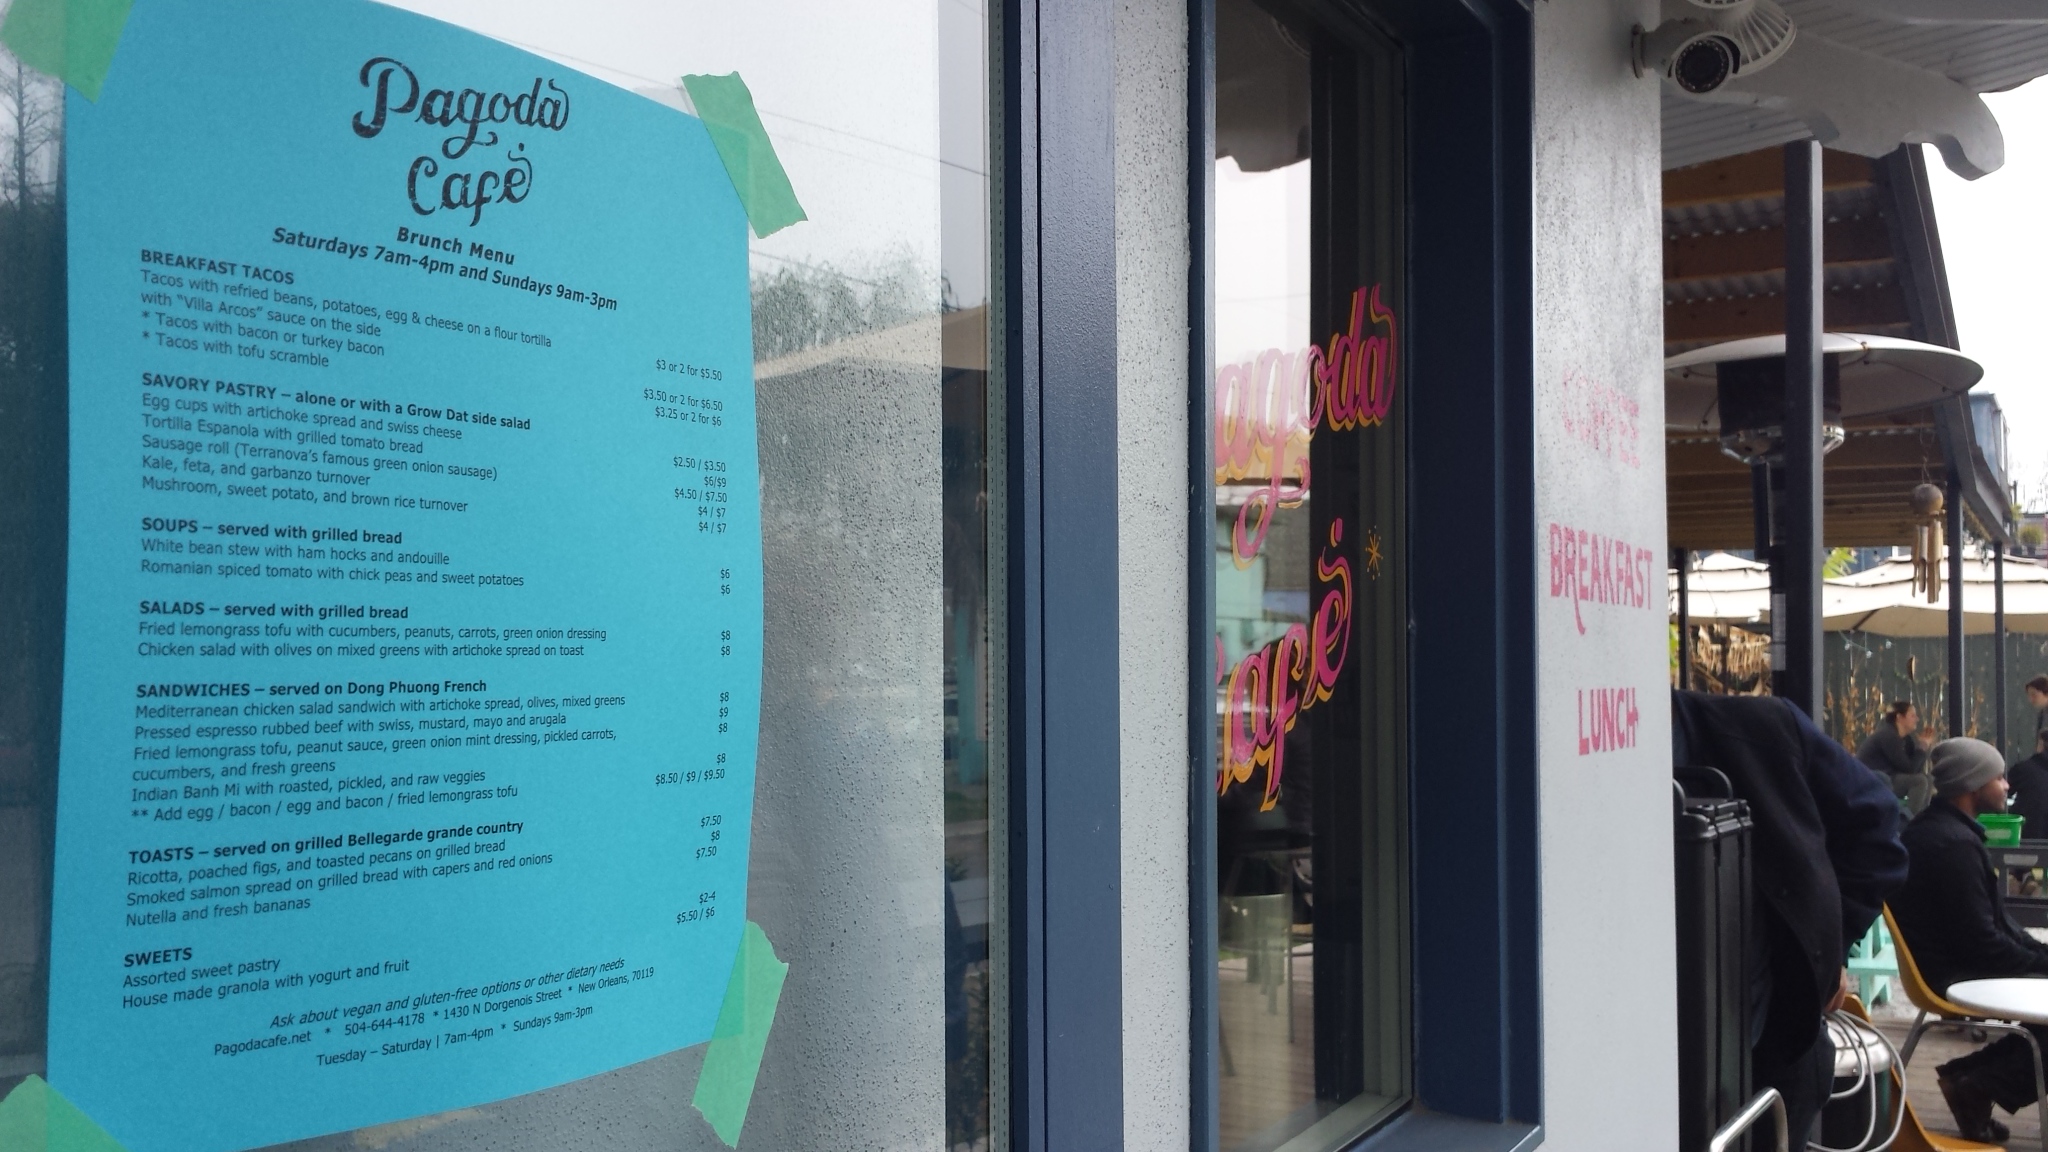 Pagoda
Café
Brunch Menu
Saturdays 7am-4pm and Sundays 9am-3pm
BREAKFAST TACOS
Tacos with refried beans, potatoes, egg & cheese on a flour tortilla
with "Villa Arcos" sauce on the side $3 or 2 for $5.50
* Tacos with bacon or turkey bacon $3.50 or 2 for $6.50
* Tacos with tofu scramble $3.25 or 2 for $6
SAVORY PASTRY – alone or with a Grow Dat side salad
Egg cups with artichoke spread and swiss cheese $2.50 / $3.50
Tortilla Espanola with grilled tomato bread $6/$9
Sausage roll (Terranova's famous green onion sausage) $4.50 / $7.50
Kale, feta, and garbanzo turnover $4 / $7
Mushroom, sweet potato, and brown rice turnover $4 / $7
SOUPS – served with grilled bread
White bean stew with ham hocks and andouille $6
Romanian spiced tomato with chick peas and sweet potatoes $6
SALADS – served with grilled bread
Fried lemongrass tofu with cucumbers, peanuts, carrots, green onion dressing $8
Chicken salad with olives on mixed greens with artichoke spread on toast $8
SANDWICHES – served on Dong Phuong French
Mediterranean chicken salad sandwich with artichoke spread, olives, mixed greens $8
Pressed espresso rubbed beef with swiss, mustard, mayo and arugala $9
Fried lemongrass tofu, peanut sauce, green onion mint dressing, pickled carrots, $8
cucumbers, and fresh greens
Indian Banh Mi with roasted, pickled, and raw veggies $8
** Add egg / bacon / egg and bacon / fried lemongrass tofu $8.50 / $9 / $9.50
TOASTS – served on grilled Bellegarde grande country
Ricotta, poached figs, and toasted pecans on grilled bread $7.50
Smoked salmon spread on grilled bread with capers and red onions $8
Nutella and fresh bananas $7.50
SWEETS
Assorted sweet pastry $2-4
House made granola with yogurt and fruit $5.50 / $6
Ask about vegan and gluten-free options or other dietary needs
Pagodacafe.net * 504-644-4178 * 1430 N Dorgenois Street * New Orleans, 70119
Tuesday – Saturday | 7am-4pm * Sundays 9am-3pm
agoda
Café
COFFEE
BREAKFAST
LUNCH